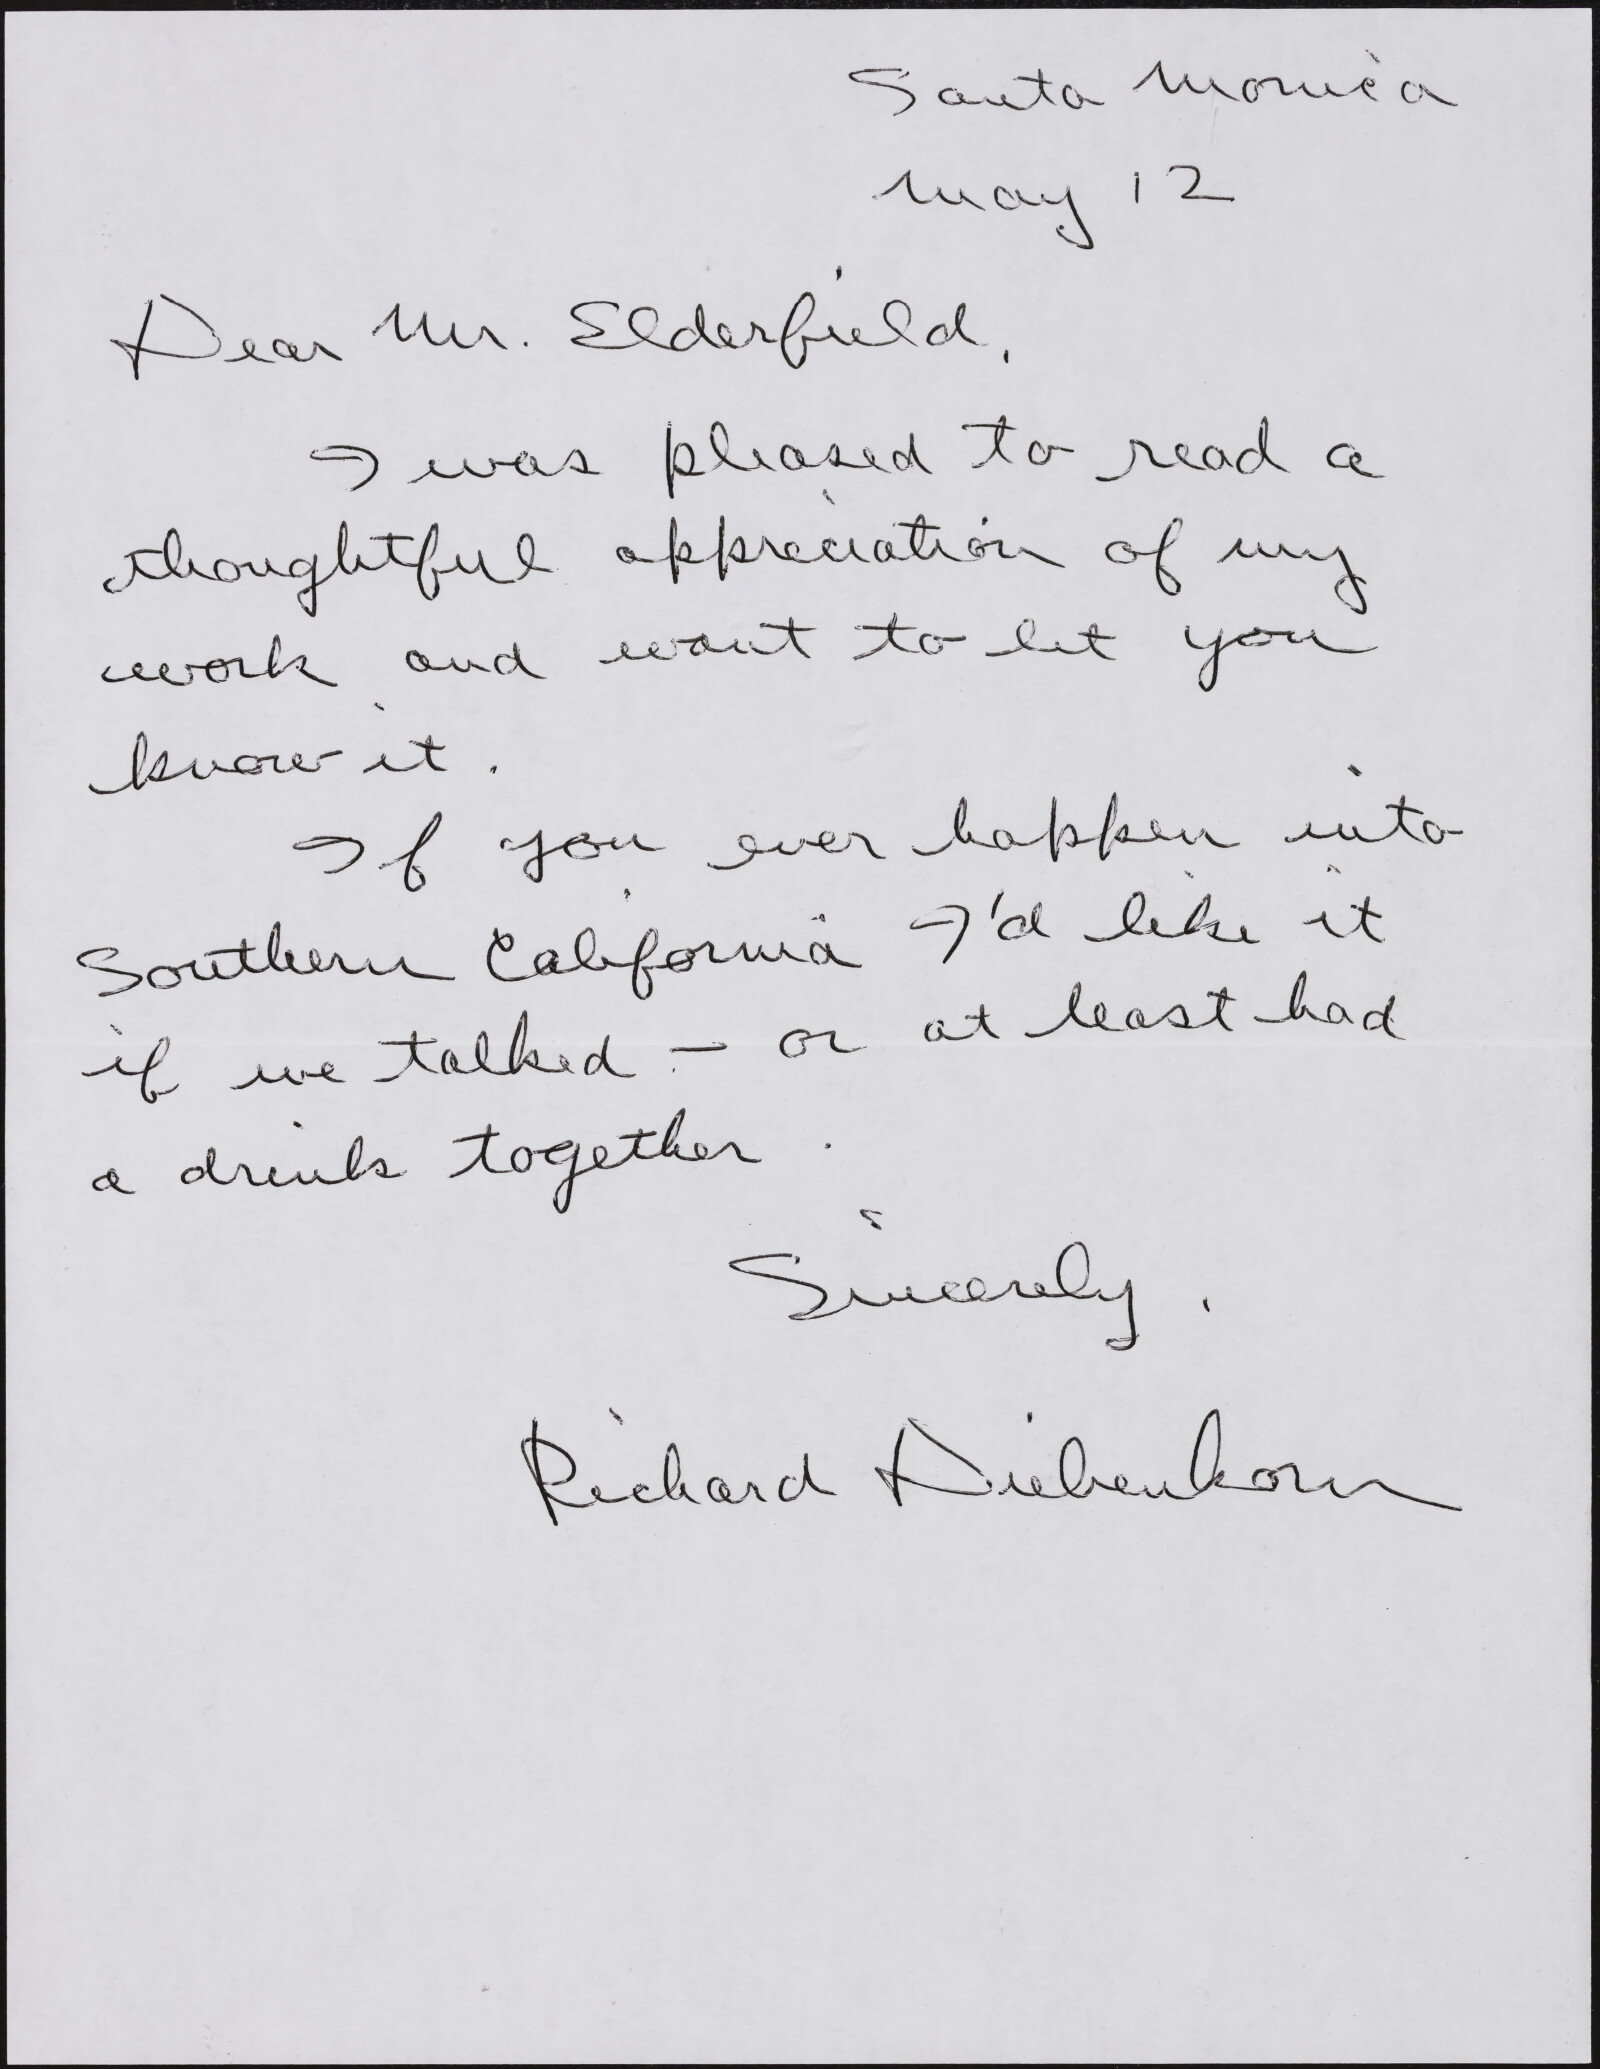 Santa Monica
May 12
Dear Mr. Elderfield,
I was pleased to read a
thoughtful appreciation of my
work and want to let you
know it.
If you ever happen into
Southern California I'd like it
if we talked – or at least had
a drink together.
Sincerely,
Richard Diebenkorn